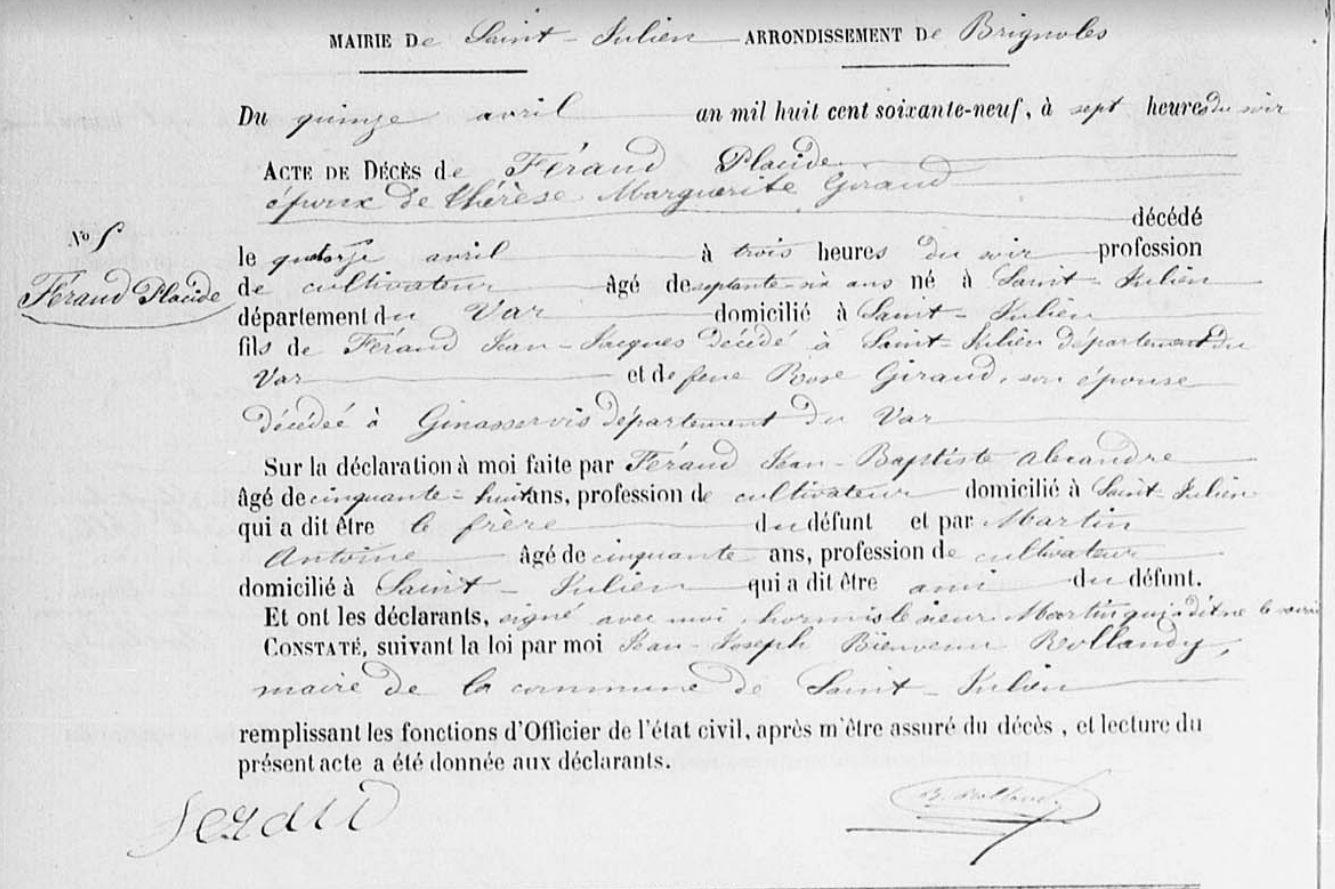 MAIRIE De Saint-Julien ARRONDISSEMENT De Brignoles
Du quinze avril an mil huit cent soixante-neuf, à sept heures du soir
ACTE DE DÉCÈS de Féraud Placide
époux de thérèse Marguerite Giraud
décédé
N° 5
le quatorze avril à trois heures du soir profession
Féraud Placide
de cultivateur âgé de septante-six ans né à Saint-Julien
département du Var domicilié à Saint-Julien
fils de Féraud Jean-Jacques décédé à Saint-Julien département du
Var et de feue Rose Giraud, son épouse
décédée à Ginasservis département du Var
Sur la déclaration à moi faite par Féraud Jean-Baptiste alexandre
âgé de cinquante-huit ans, profession de cultivateur domicilié à Saint-Julien
qui a dit être le frère du défunt et par Martin
Antoine âgé de cinquante ans, profession de cultivateur
domicilié à Saint-Julien qui a dit être ami du défunt.
Et ont les déclarants, signé avec moi, hormis le sieur Martin qui a dit ne le savoir
CONSTATÉ, suivant la loi par moi Jean-Joseph Bienvenu Rollandy,
maire de la commune de Saint-Julien
remplissant les fonctions d'Officier de l'état civil, après m'être assuré du décès, et lecture du
présent acte a été donnée aux déclarants.
feraud B. Rollandy